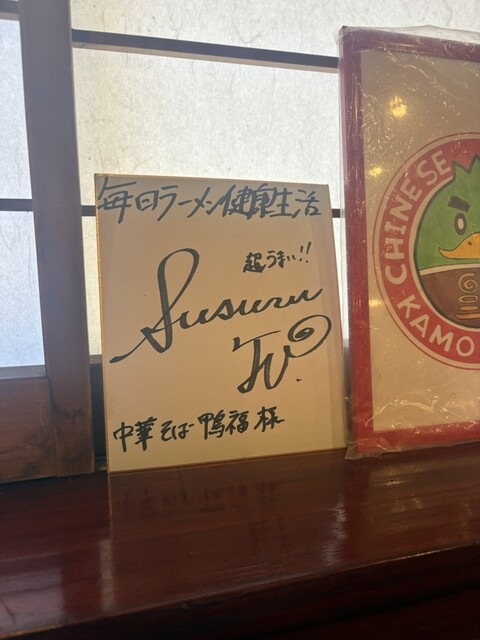 毎日ラーメン健康生活
超うまい!!
Susuru
TV.
中華そば 鴨福 様
CHINESE
KAMO